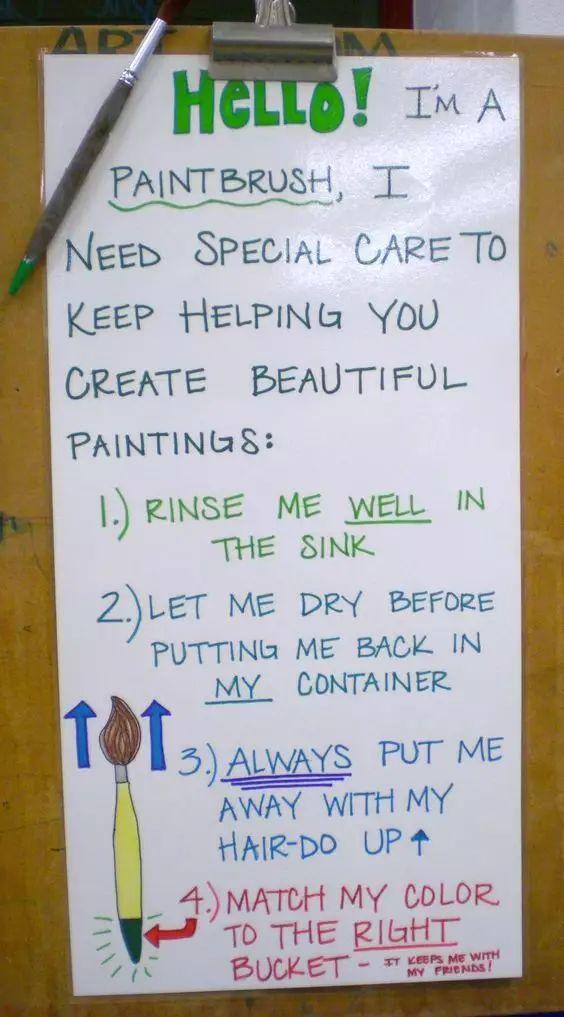 ART
HELLO! I'M A
PAINTBRUSH, I
NEED SPECIAL CARE TO
KEEP HELPING YOU
CREATE BEAUTIFUL
PAINTINGS:
1.) RINSE ME WELL IN
THE SINK
2.) LET ME DRY BEFORE
PUTTING ME BACK IN
MY CONTAINER
3.) ALWAYS PUT ME
AWAY WITH MY
HAIR-DO UP ↑
4.) MATCH MY COLOR
TO THE RIGHT
BUCKET - IT KEEPS ME WITH
MY FRIENDS!